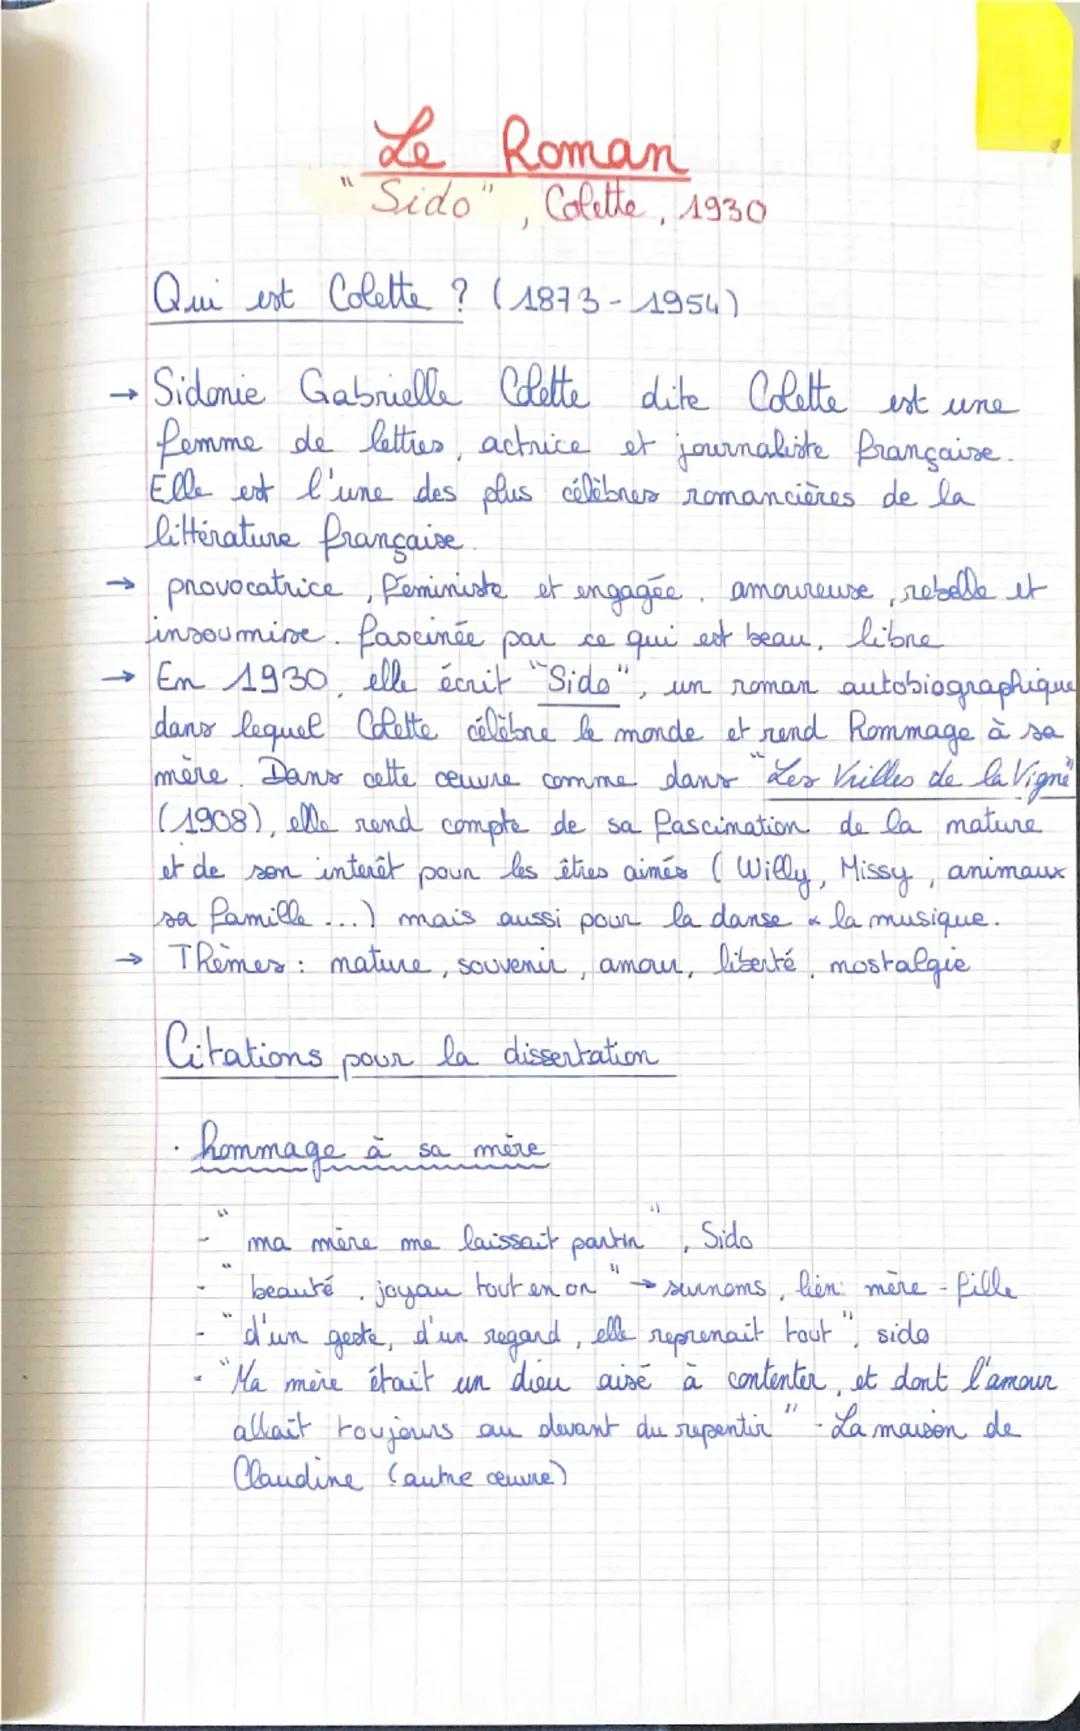 Le Roman
"Sido", Colette, 1930
Qui est Colette ? (1873-1954)
→ Sidonie Gabrielle Colette dite Colette est une
femme de lettres, actrice et journaliste française.
Elle est l'une des plus célèbres romancières de la
littérature française.
→ provocatrice, féministe et engagée. amoureuse, rebelle et
insoumise. fascinée par ce qui est beau, libre
→ En 1930, elle écrit "Sido", un roman autobiographique
dans lequel Colette célèbre le monde et rend hommage à sa
mère. Dans cette œuvre comme dans "Les Vrilles de la Vigne"
(1908), elle rend compte de sa fascination de la nature
et de son interêt pour les êtres aimés (Willy, Missy, animaux
sa famille ...) mais aussi pour la danse & la musique.
→ Thèmes : nature, souvenir, amour, liberté, nostalgie
Citations pour la dissertation
. hommage à sa mère
- "ma mère me laissait partir", Sido
- "beauté, joyau tout en or" → surnoms, lien mère - fille
- "d'un geste, d'un regard, elle reprenait tout", sido
- "Ma mère était un dieu aisé à contenter, et dont l'amour
allait toujours au devant du repentir" - La maison de
Claudine (autre œuvre)